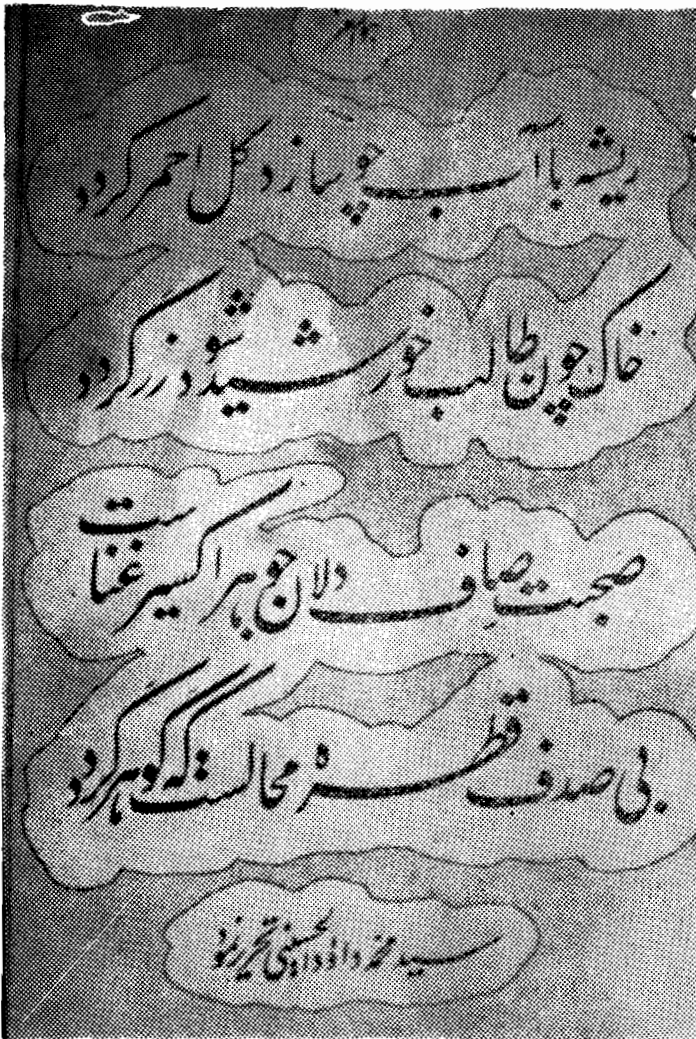 ریشه با آب چو سازد گل احمر گردد
خاک چون طالب خورشید شود زر گردد
صحبت صاف دلان جوهر اکسیر غناست
بی صدف قطره محالست که گوهر گردد
سید محمد داؤد الحسینی تحریر نمود